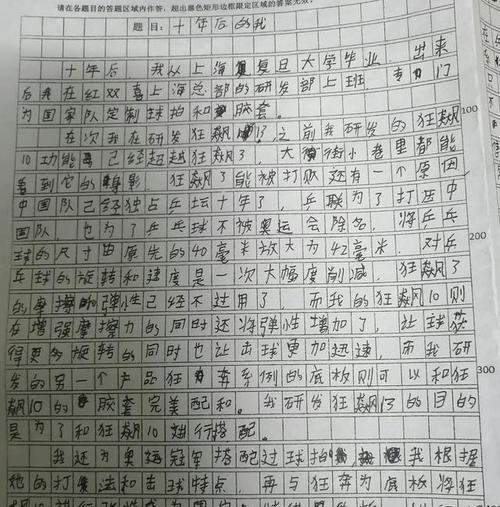 请在各题目的答题区域内作答，超出黑色矩形边框限定区域的答案无效！
题目：十年后的我
十年后，我从上海复旦大学毕业，出来
后我在红双喜上海总部的研发部上班，专门
为国家队定制球拍和胶套。
在次我在研发狂飙13，之前我研发的狂飙
100
10功能已经超越狂飙了，大街小巷里都能
看到它的身影，狂飙了能被打败还有一个原因，
中国队已经独占乒坛十年了，乒联为了打压中
国队，也为了乒乓球不被奥运会除名，将乒乓
200
球的尺寸由原先的40毫米放大为42毫米，对乒
乓球的旋转和速度是一次大幅度削减，狂飙了
的摩擦和弹性已经不过用了，而我的狂飙10则
在增强摩擦力的同时还将弹性增加了，让球获
得更多旋转的同时也让击球更加迅速，而我研
发的另一个产品狂奔系例的底板则可以和狂
300
飙10的胶套完美配和。我研发狂飙13的目的
是为了和狂飙10进行搭配。
我还为奥运冠军搭配过球拍，我根据
她的打法和击球特点，再与狂奔为底板将狂